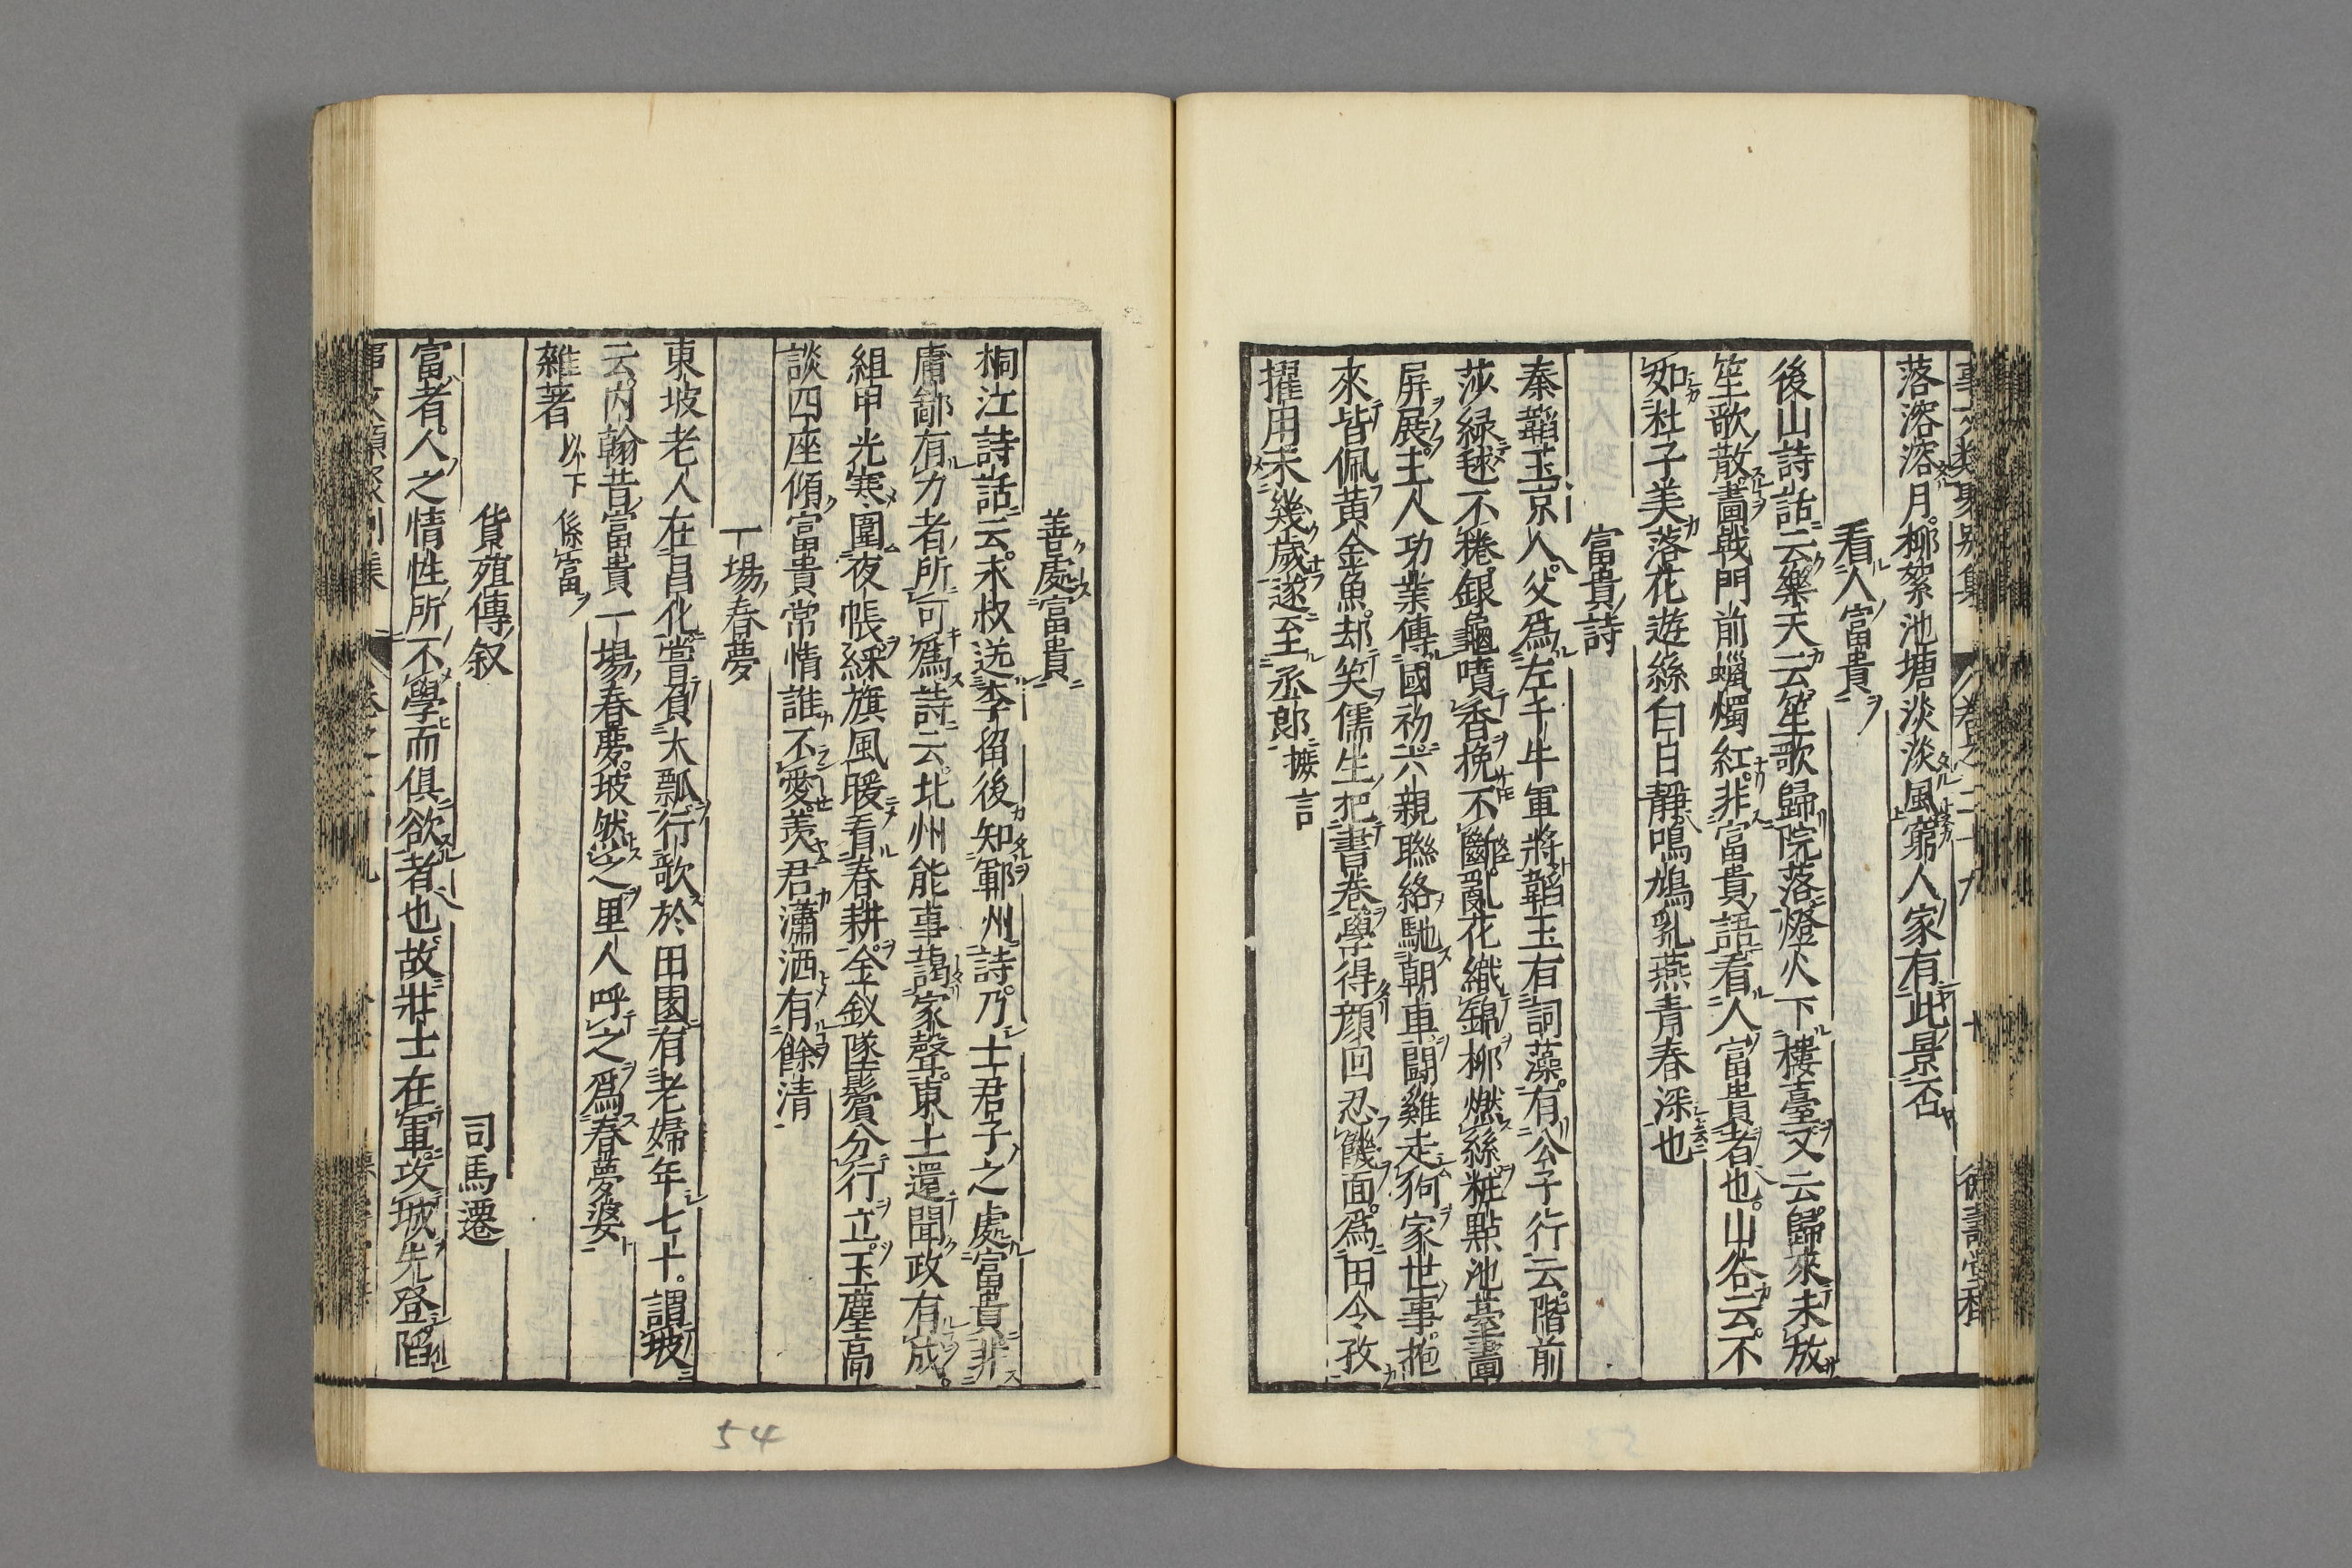 落溶溶月柳絮池塘淡淡風窮人家有此景否
看人富貴
後山詩話云樂天云笙歌歸院落燈火下樓臺又云歸來未放
笙歌散畫戟門前蠟燭紅非富貴語看人富貴者也山谷云不
如杜子美落花遊絲白日靜鳴鳩乳燕青春深也
富貴詩
秦韜玉京人父爲左千牛軍將韜玉有詞藻有公子行云階前
莎緑毬不稀銀龜噴香挽不斷亂花織錦柳燃絲粧點池臺畫
屏展主人功業傳國初六親聯絡馳朝車鬪雞走狗家世事抱
來皆佩黄金魚却笑儒生把書卷學得顔回忍饑面爲田令孜
擢用未幾歲遂至丞郎摭言
善處富貴
桐江詩話云永叔送李留後知鄆州詩乃士君子之處富貴非
庸鄙有力者所可爲詩云北州能事藹家聲東土還聞政有成
組甲光寒圍夜帳綵旗風暖看春耕金釵墜鬢分行立玉麈高
談四座傾富貴常情誰不愛羨君瀟洒有餘清
一場春夢
東坡老人在昌化嘗負大瓢行歌於田園有老婦年七十謂坡
云内翰昔富貴一場春夢坡然之里人呼之爲春夢婆
雜著 以下係富
貨殖傳叙 司馬遷
富者人之情性所不學而俱欲者也故壯士在軍攻城先登陷
54